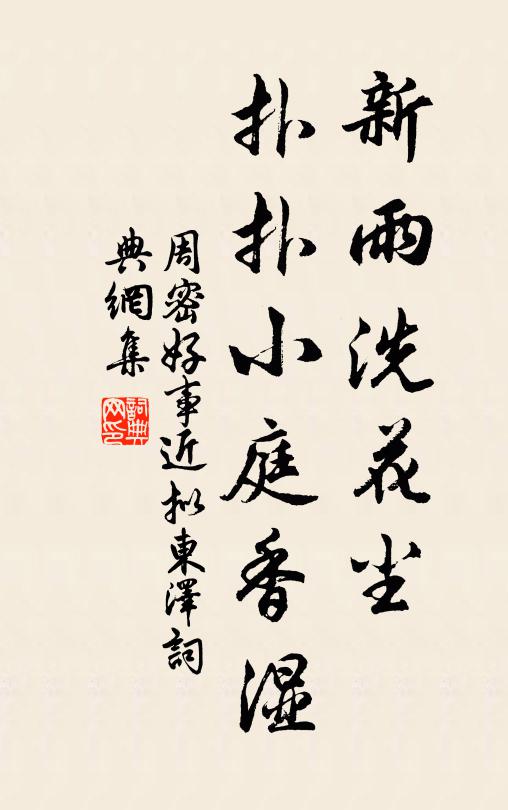 新雨洗花尘
扑扑小庭香湿
周密好事近拟東澤詞
典網集
詞典网印